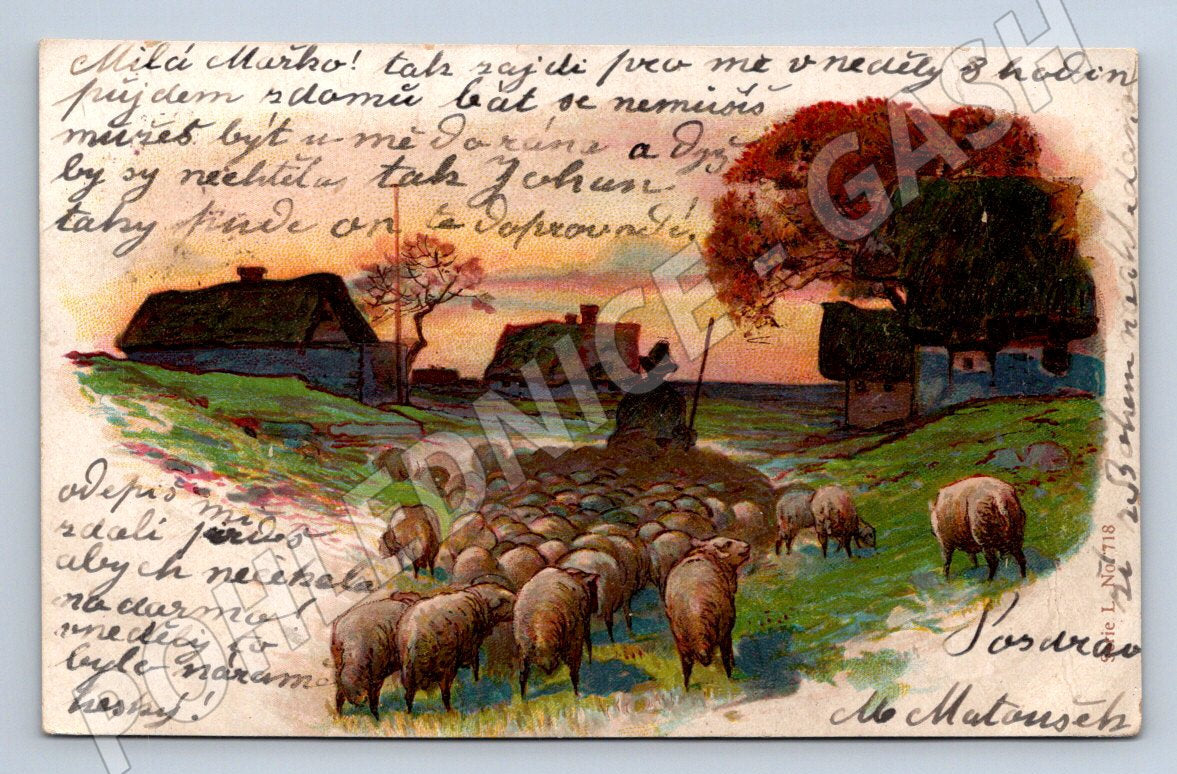 Milá Mařko! tak zajdi pro mě v neděly 3 hodin
pujdem zdomů bát se nemusíš
mužeš být u mě do ráne a dyž
by sy nechtěla, tak Johan
taky pude on tě doprovodí,
odepiš mi
zdali prídeš
abych nečekala
na darmo!
vneděly to
bylo náramě
heský!
Pozdrav
M Matoušek
s Bohem nechledanou
Serie L. No. 718
POHLEDNICE - GASH